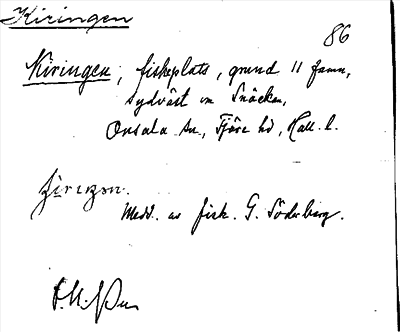 Kiringen
86
Kiringen, fiskeplats, grund 11 famn,
sydväst om Snäckan,
Onsala sn, Fjäre hd, Hall. l.
Medd. av fisk. G. Söderberg.